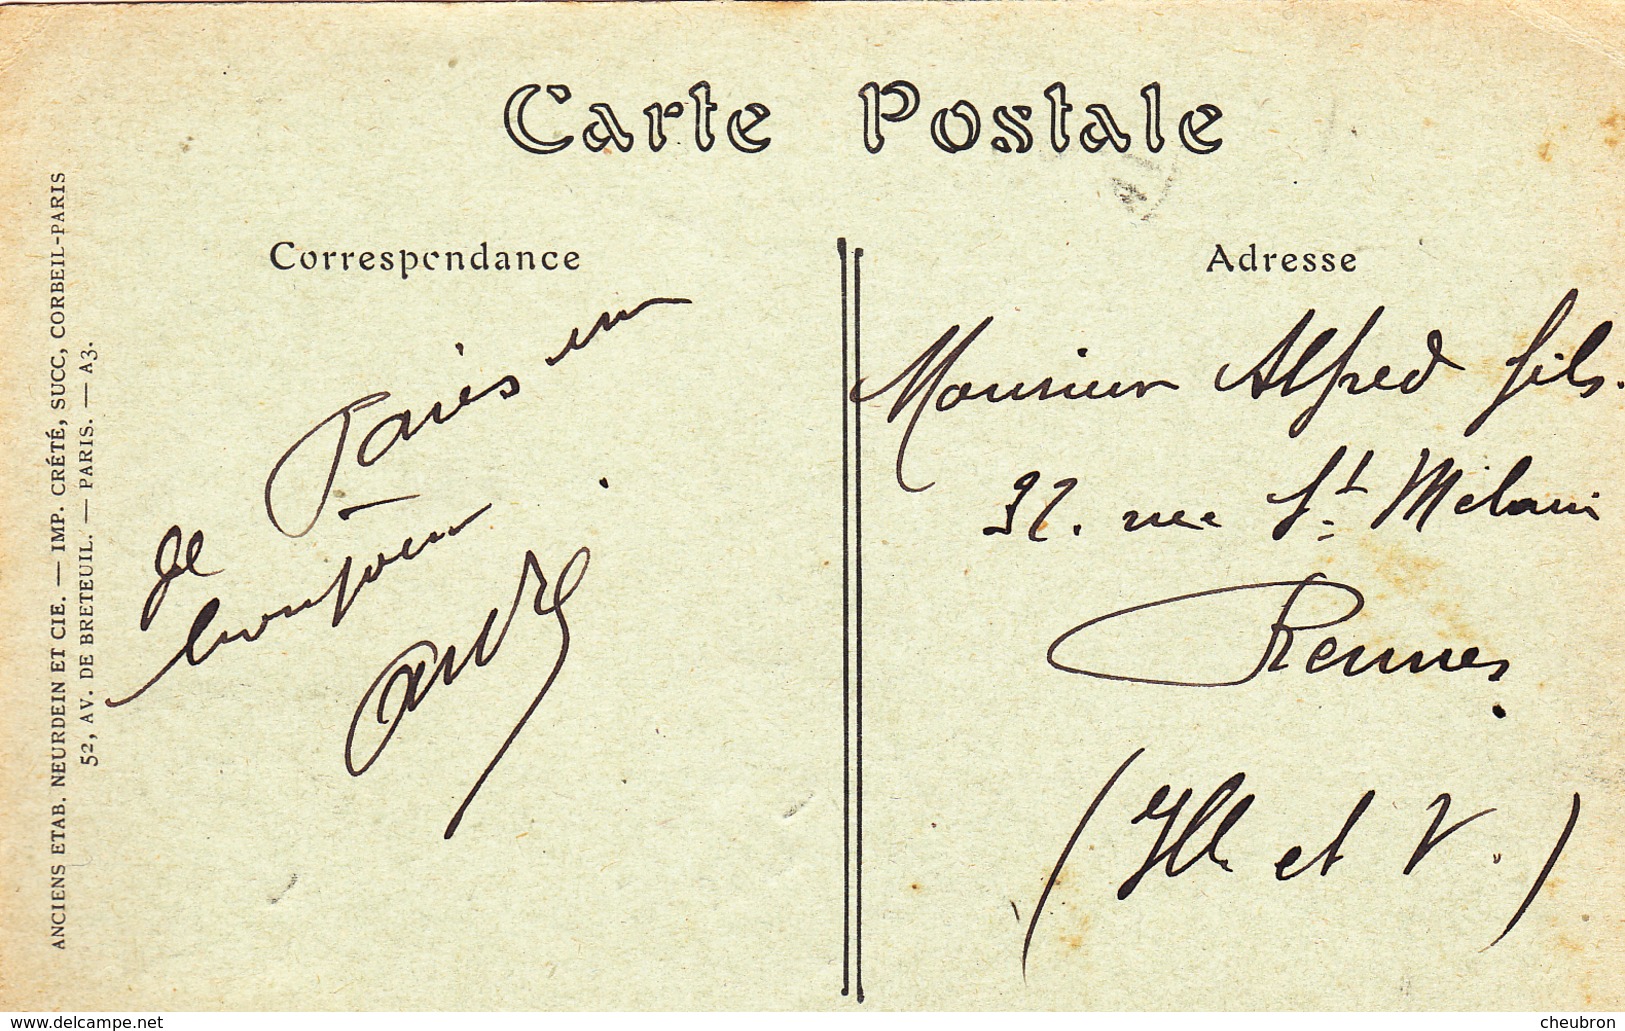 Carte Postale
Correspondance
Adresse
ANCIENS ETAB. NEURDEIN ET CIE. — IMP. CRÉTÉ, SUCC, CORBEIL-PARIS
52, AV. DE BRETEUIL. — PARIS. — A3.
de Paris un
bonjour.
André
Monsieur Alfred fils.
32. rue St. Melain
Rennes.
(Ille et V.)
www.delcampe.net
cheubron